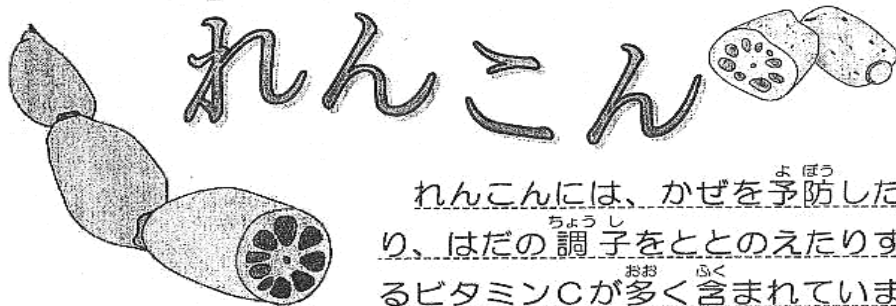 れんこん
れんこんには、かぜを予防した
り、はだの調子をととのえたりす
るビタミンCが多く含まれていま